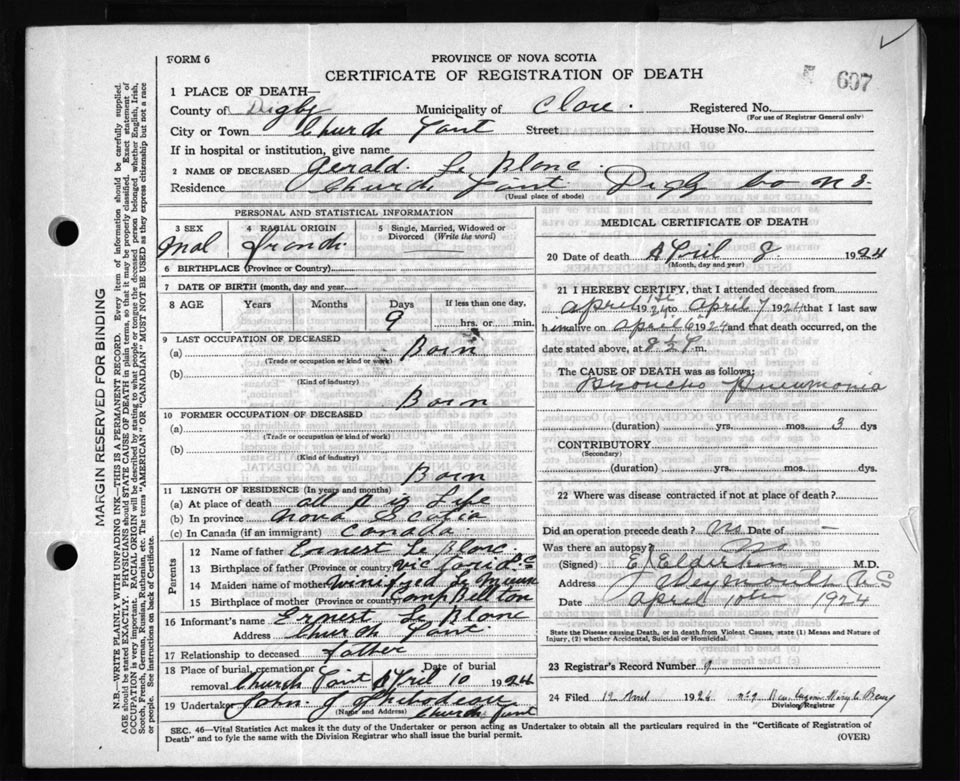 FORM 6
PROVINCE OF NOVA SCOTIA
CERTIFICATE OF REGISTRATION OF DEATH
607
1 PLACE OF DEATH—
County of Digby Municipality of Clare. Registered No.
(For use of Registrar General only)
City or Town Church Point Street House No.
If in hospital or institution, give name
2 NAME OF DECEASED Gerald Le Blanc
Residence Church Point Digby Co N S.
(Usual place of abode)
PERSONAL AND STATISTICAL INFORMATION
3 SEX 4 RACIAL ORIGIN 5 Single, Married, Widowed or Divorced (Write the word)
Mal French
6 BIRTHPLACE (Province or Country)
7 DATE OF BIRTH (month, day and year)
8 AGE Years Months Days If less than one day,
9 hrs. or min.
9 LAST OCCUPATION OF DECEASED
(a) Born
(Trade or occupation or kind of work)
(b)
(Kind of industry)
Born
10 FORMER OCCUPATION OF DECEASED
(a)
(Trade or occupation or kind of work)
(b)
(Kind of industry)
Born
11 LENGTH OF RESIDENCE (In years and months)
(a) At place of death all his Life
(b) In province Nova Scotia
(c) In Canada (if an immigrant) Canada
Parents
12 Name of father Ernest Le Blanc
13 Birthplace of father (Province or country)
14 Maiden name of mother Winifred
15 Birthplace of mother (Province or country) Campbellton
16 Informant's name Ernest Le Blanc
Address Church Point
17 Relationship to deceased father
18 Place of burial, cremation or removal Church Point Date of burial April 10 1924
19 Undertaker John J
(Name and Address) Church Point
MEDICAL CERTIFICATE OF DEATH
20 Date of death April 8 1924
(Month, day and year)
21 I HEREBY CERTIFY, that I attended deceased from
April 1st 1924 to April 7 1924 that I last saw
him alive on April 6 1924 and that death occurred, on
date stated above, at m.
The CAUSE OF DEATH was as follows:
Broncho Pneumonia
(duration) yrs. mos. 3 dys
CONTRIBUTORY
(Secondary)
(duration) yrs. mos. dys
22 Where was disease contracted if not at place of death?
Did an operation precede death? No Date of —
Was there an autopsy? No
(Signed) E. Elderkin M.D.
Address Weymouth N S
Date April 10th 1924
State the Disease causing Death, or in death from Violent Causes, state (1) Means and Nature of
Injury, (2) whether Accidental, Suicidal or Homicidal.
23 Registrar's Record Number 9
24 Filed 12 April 1924
Division Registrar
SEC. 46—Vital Statistics Act makes it the duty of the Undertaker or person acting as Undertaker to obtain all the particulars required in the "Certificate of Registration of
Death" and to fyle the same with the Division Registrar who shall issue the burial permit.
(OVER)
MARGIN RESERVED FOR BINDING
N.B.—WRITE PLAINLY WITH UNFADING INK—THIS IS A PERMANENT RECORD. Every item of information should be carefully supplied.
AGE should be stated EXACTLY. PHYSICIANS should STATE CAUSE OF DEATH in plain terms, so that it may be properly classified. Exact statement of
OCCUPATION is very important. RACIAL ORIGIN will be described by stating to what people or tongue the deceased person belonged whether English, Irish,
Scotch, French, German, Russian, Ruthenian, etc. The terms "AMERICAN" OR "CANADIAN" MUST NOT BE USED as they express citizenship but not a race
or people. See instructions on back of Certificate.